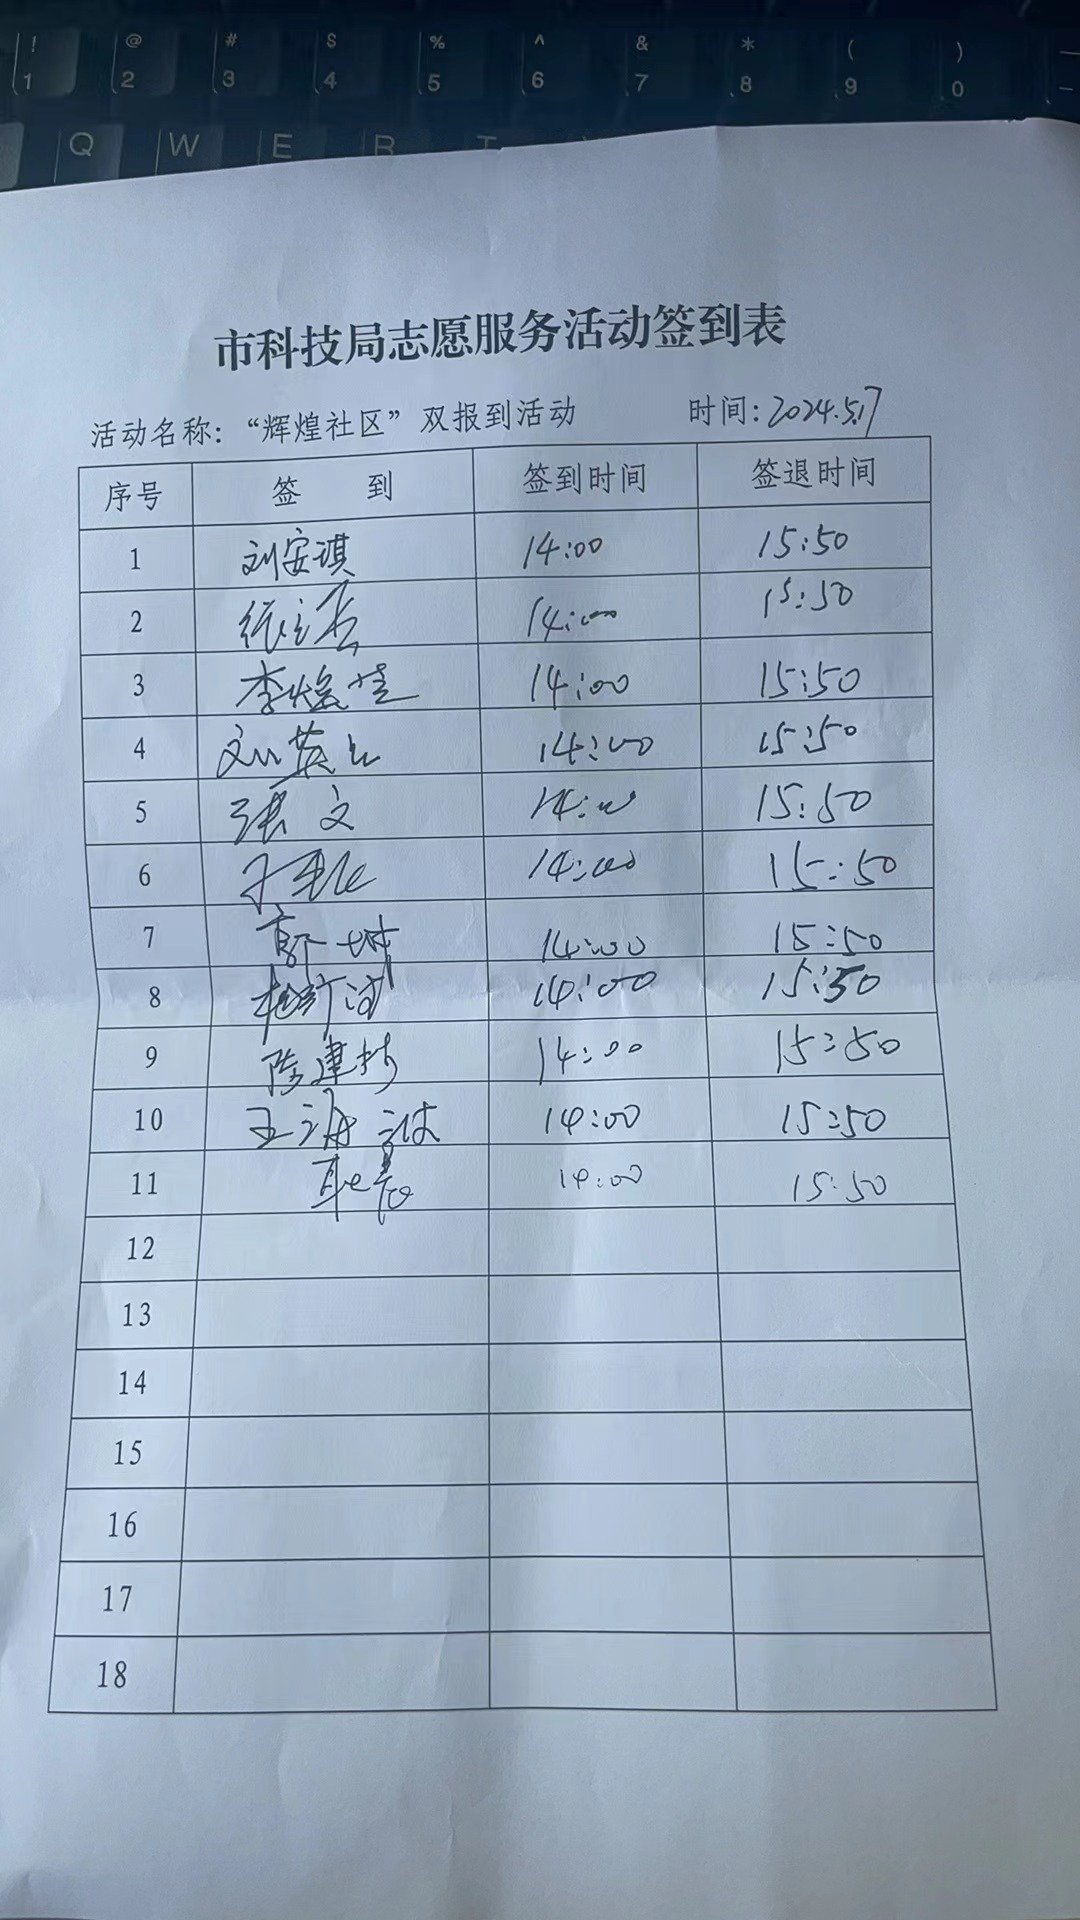 ! @ # $ % ^ & * ( )
1 2 3 4 5 6 7 8 9 0
Q W E R T
市科技局志愿服务活动签到表
活动名称：“辉煌社区”双报到活动 时间：2024.5.17
序号 签 到 签到时间 签退时间
1 刘安琪 14:00 15:50
2 14:00 15:50
3 李 14:00 15:50
4 刘英 14:00 15:50
5 张文 14:00 15:50
6 14:00 15:50
7 14:00 15:50
8 14:00 15:50
9 陈建 14:00 15:50
10 王海波 14:00 15:50
11 14:00 15:50
12
13
14
15
16
17
18